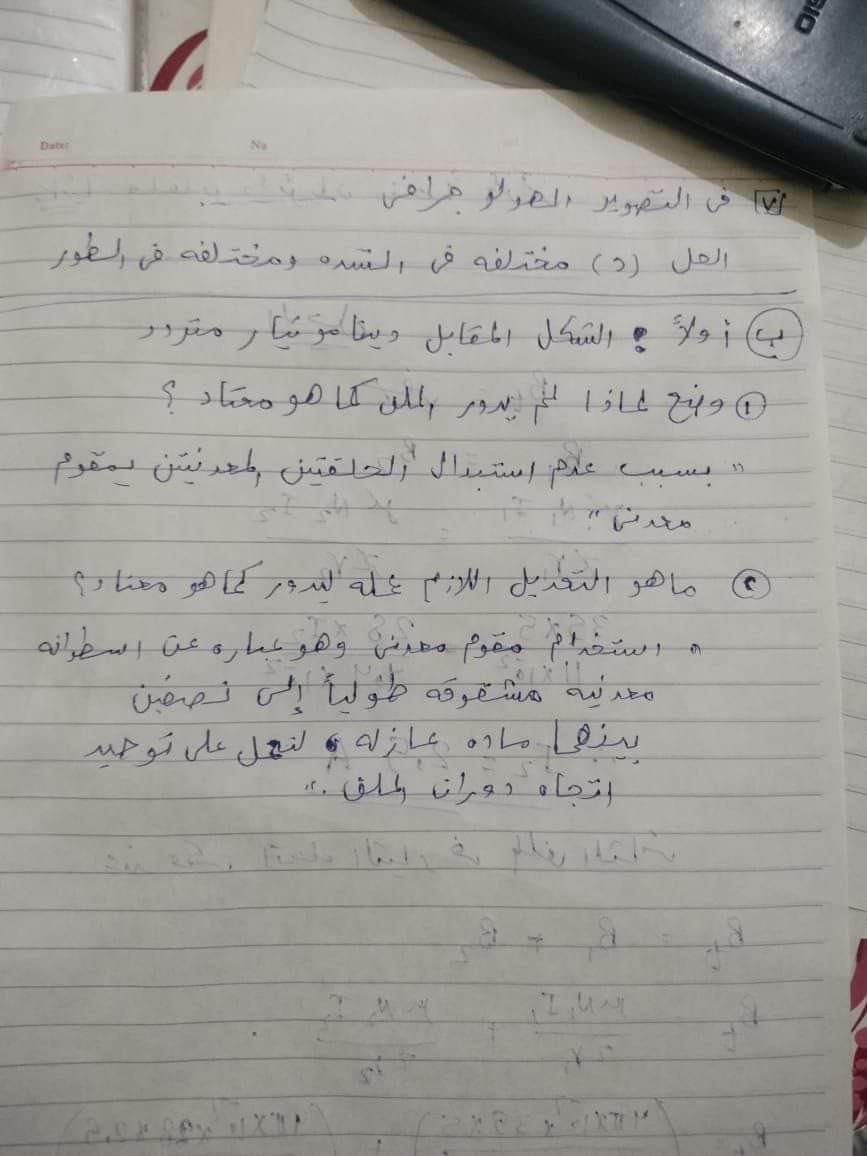 DIGI
Date:
No
٧ فى التصوير الهولوجرافى
الحل (د) مختلفه فى الشده ومختلفه فى الطور
ب أولاً: الشكل المقابل دينامو تيار متردد
① وضح لماذا لم يدور الملف كما هو معتاد؟
" بسبب عدم استبدال الحلقتين المعدنيتين بمقوم
معدنى "
② ما هو التعديل اللازم عمله ليدور كما هو معتاد؟
" استخدام مقوم معدنى وهو عباره عن اسطوانه
معدنيه مشقوقه طولياً إلى نصفين
بينهما ماده عازله لتعمل على توحيد
اتجاه دوران الملف . "